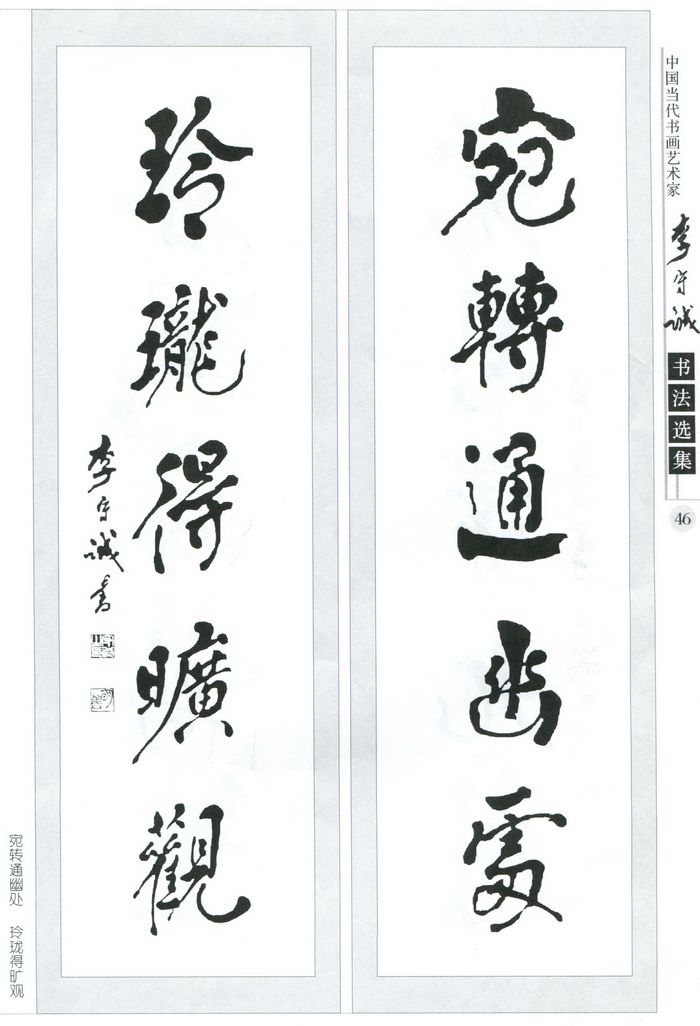 中国当代书画艺术家
李守诚
书法选集
46
宛轉通幽處
玲瓏得曠觀
李守誠書
宛转通幽处 玲珑得旷观